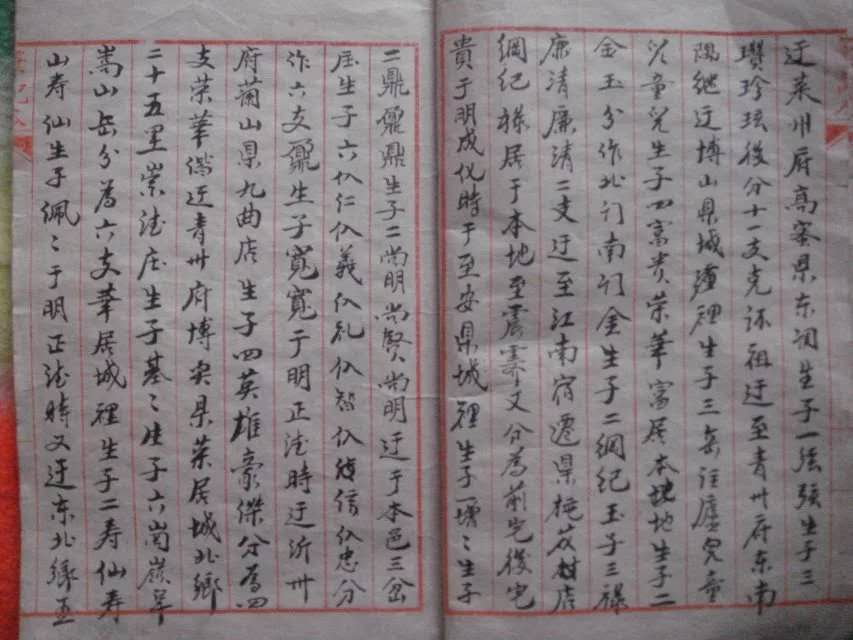 迁莱州府高密县东润生子一弦弦生子三
瓒珍珐後分十一支克还祖迁至青州府东南
隅继迁博山县城理生子三
儿童儿生子四富贵荣华富居本地生子二
金玉分作北门南门金生子二綱纪玉子三禄
廉清廉清二支迁至江南宿遷県村店
綱纪禄居于本地至震霁又分為前宅後宅
貴于明成化時于至安県城裡生子一増〻生子
二鼎鼐鼎生子二尚明尚賢尚明迁于本邑三岔
庄生子六仁仁仁義仁礼仁智仁信仁忠分
作六支鼐生子寬寬于明正德時迁沂州
府蘭山県九曲店生子四英雄豪傑分為四
支荣華偕迁青州府博安県荣居城北鄉
二十五里崇德庄生子基〻生子六崗
嵩山岳分為六支華居城裡生子二寿仙寿
山寿仙生子佩〻于明正德時又迁东北缘